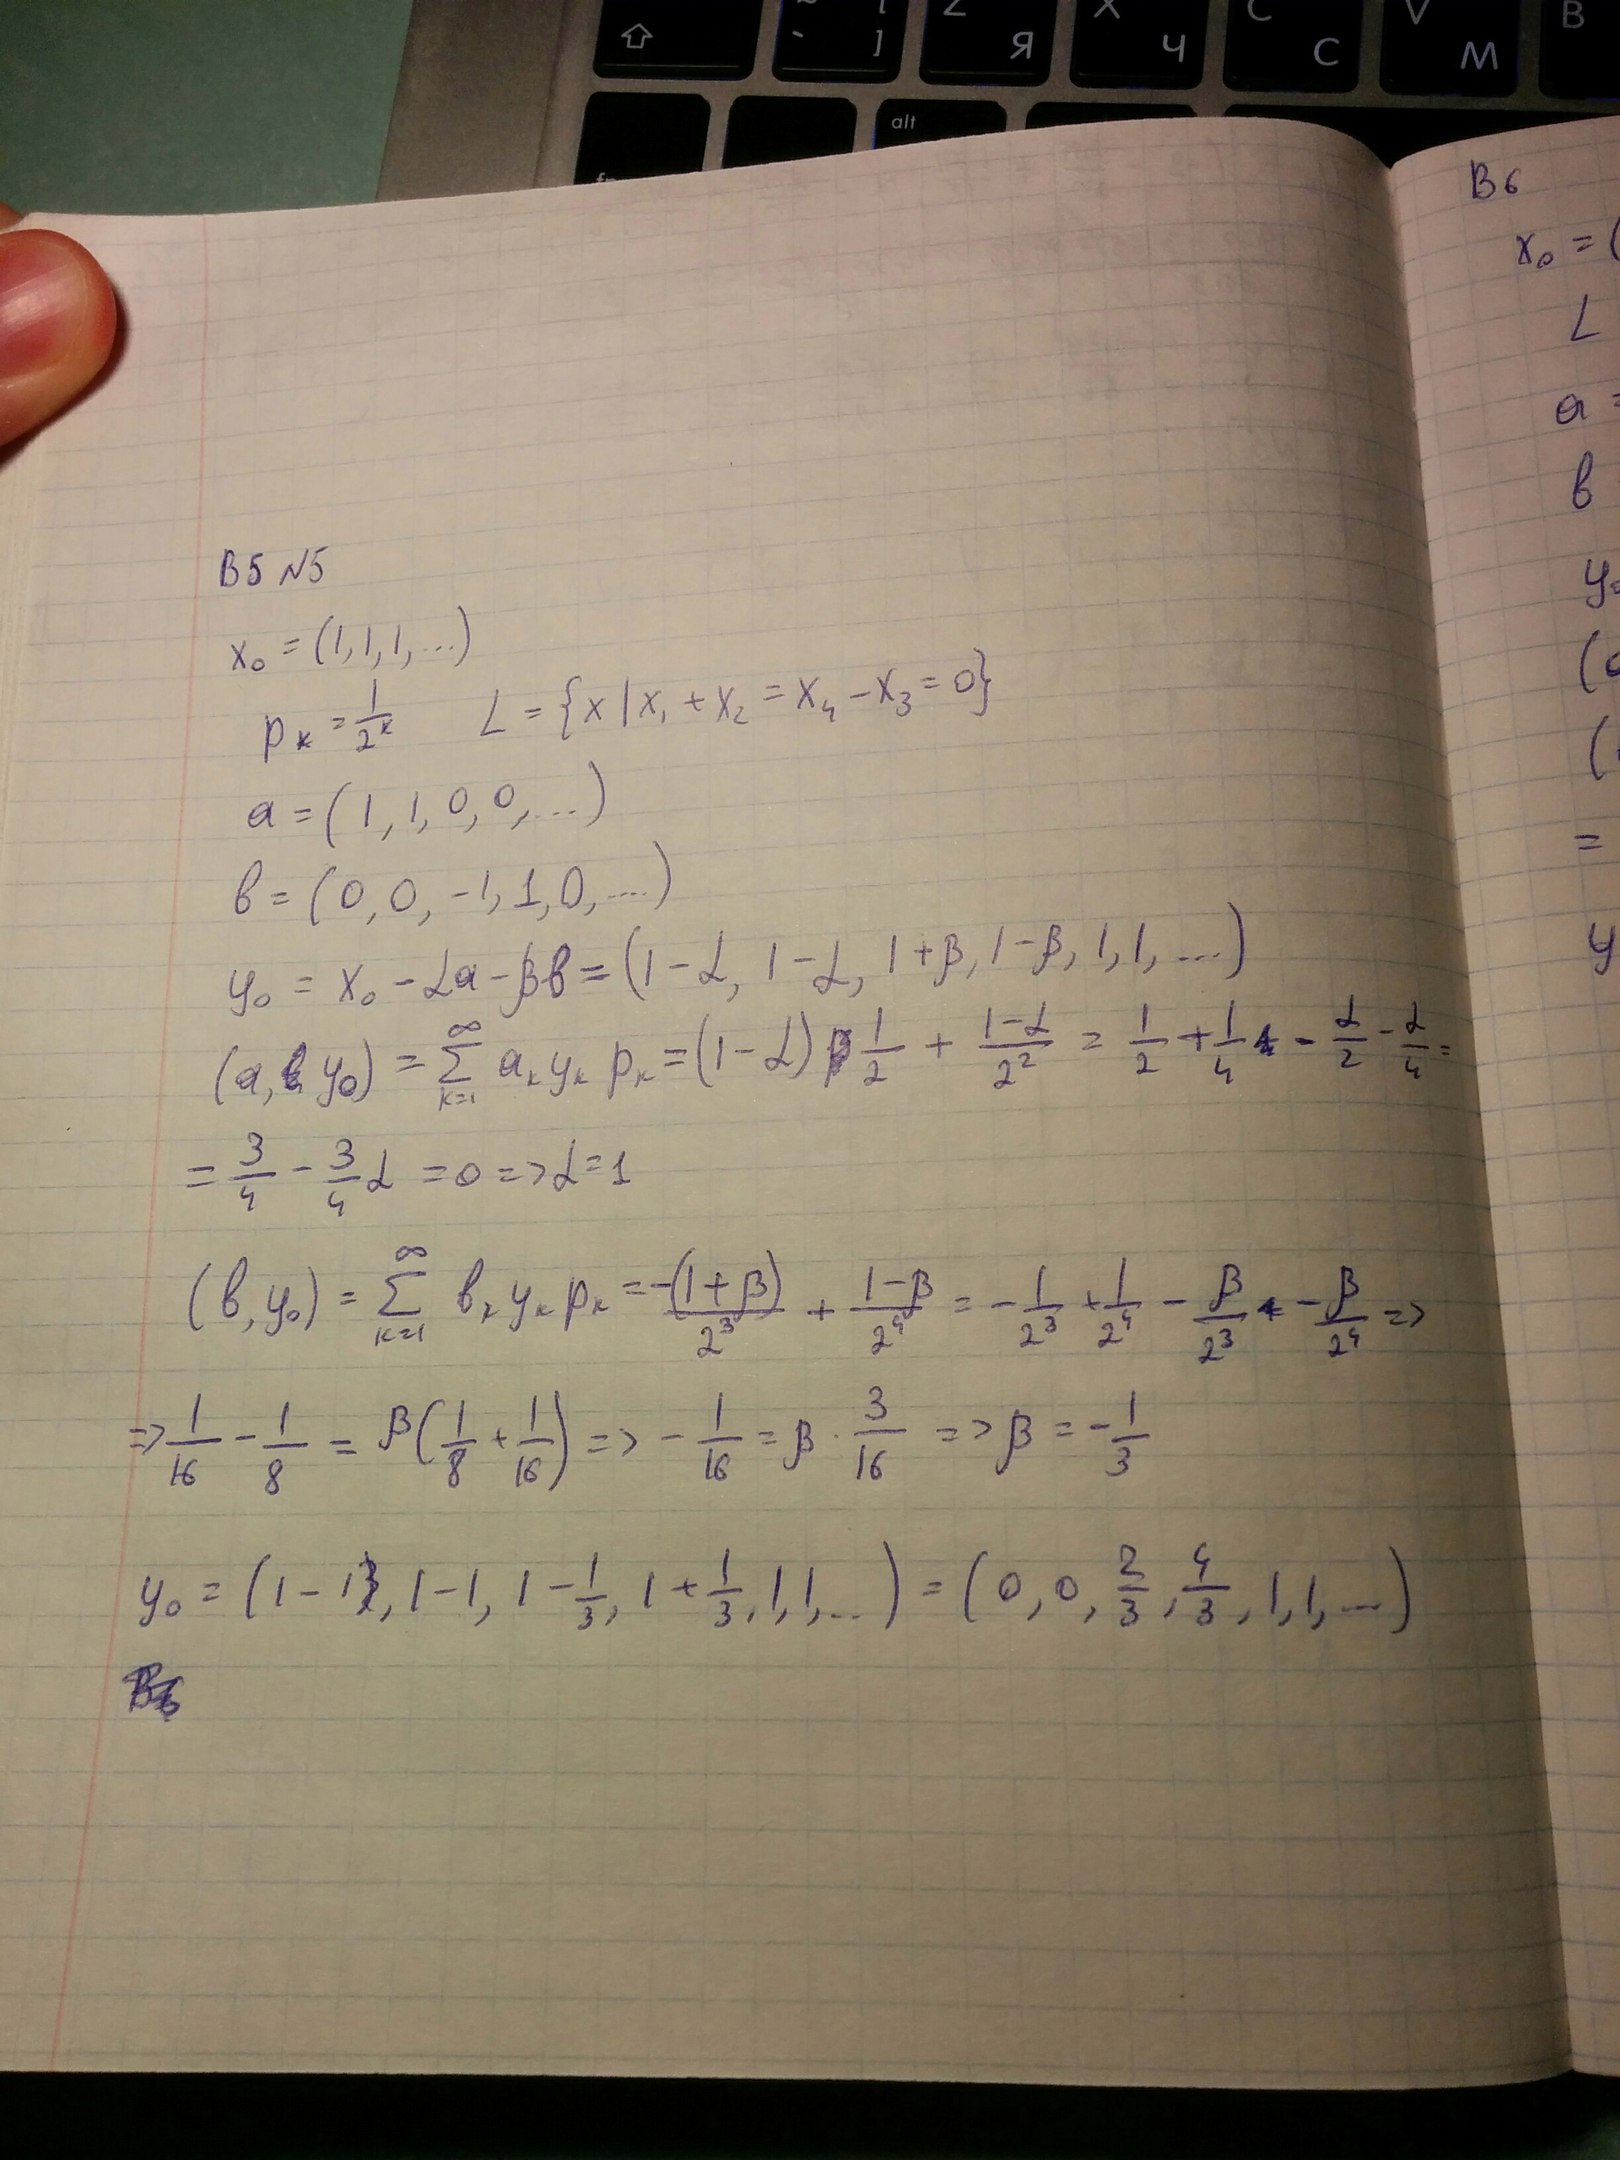 ] Z Я X Ч C С V М B
alt
fn
В5 №5
x₀ = (1,1,1,...)
pₖ = 1/2ᵏ L = {x | x₁ + x₂ = x₄ - x₃ = 0}
a = (1, 1, 0, 0, ...)
в = (0, 0, -1, 1, 0, ...)
y₀ = x₀ - αa - βв = (1-α, 1-α, 1+β, 1-β, 1, 1, ...)
(a, y₀) = ∑_{k=1}^{∞} aₖ yₖ pₖ = (1-α) 1/2 + (1-α)/2² = 1/2 + 1/4 - α/2 - α/4 =
= 3/4 - 3/4 α = 0 => α = 1
(в, y₀) = ∑_{k=1}^{∞} вₖ yₖ pₖ = -(1+β)/2³ + (1-β)/2⁴ = - 1/2³ + 1/2⁴ - β/2³ - β/2⁴ =>
=> 1/16 - 1/8 = β(1/8 + 1/16) => - 1/16 = β · 3/16 => β = - 1/3
y₀ = (1-1, 1-1, 1 - 1/3, 1 + 1/3, 1, 1, ...) = (0, 0, 2/3, 4/3, 1, 1, ...)
В6
x₀ = (
L
a =
в
y₀
(
(
=
y